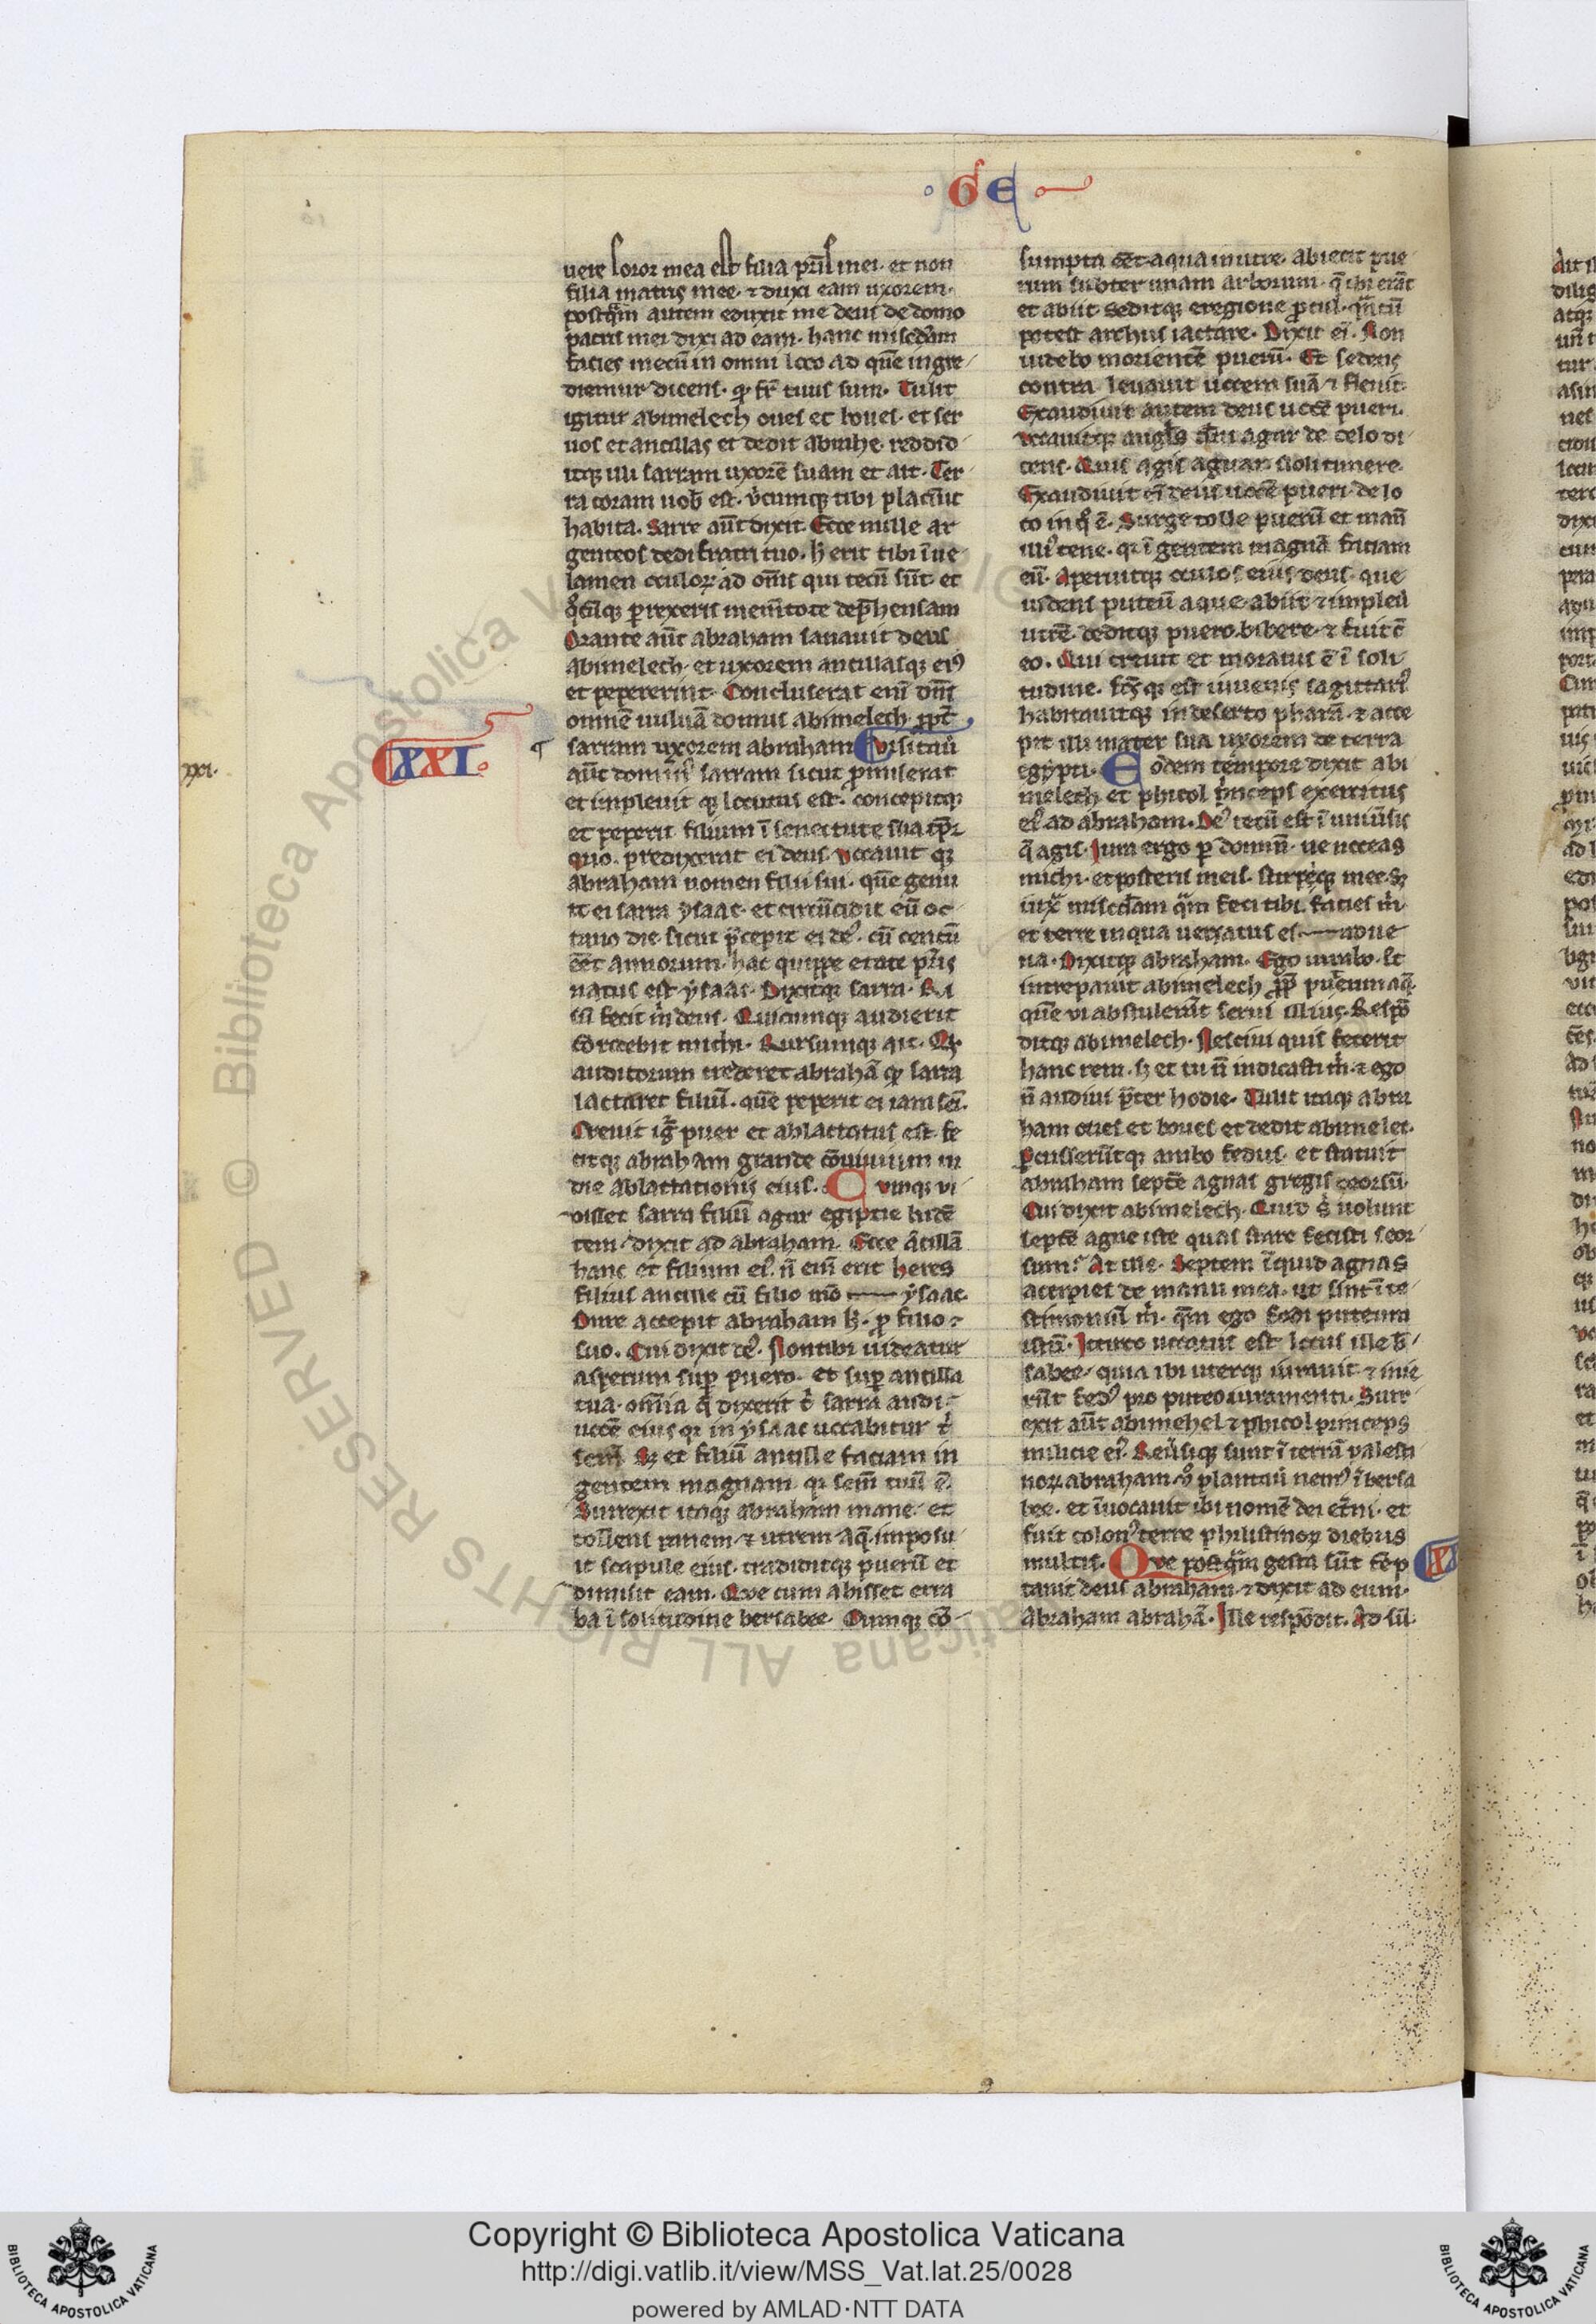 GE
uere soror mea est filia pr̄is mei. et non
filia matris mee. ⁊ duxi eam uxorem.
postq̄m autem eduxit me deus de domo
patris mei dixi ad eam. hanc mis̄cdiam
facies mecū in omni loco ad quē ingre
diemur dicens. ꝙ fr̄ tuus sum. Tulit
igitur abimelech oues et boues. et ser
uos et ancillas et dedit abrahe. reddid
itqꝫ illi sarram uxorē suam et ait. Ter
ra coram uob̄ est. ubicumqꝫ tibi placūit
habita. Sarre aūt dixit. Ecce mille ar
genteos dedi fratri tuo. h̄ erit tibi ī ue
lamen oculoꝝ ad om̄s qui tecū sūt. et
q̊cūqꝫ ꝑrexeris mem̄tote dep̄hensam
Orante aūt abraham sanauit deus
abimelech. et uxorem ancillasqꝫ eiꝰ
et pepererūt. Concluserat enī dn̄s
omnē uuluā domus abimelech. ꝓpt̄
sarram uxorem abraham Visitauit
XXI.
xxi.
aūt dominꝰ sarram sicut ꝓmiserat
et impleuit q̄ locutus est. concepitqꝫ
et peperit filium ī senectute sua tp̄r
quo predixerat ei deus. Vocauit qꝫ
abraham nomen filii sui. quē genu
it ei sarra ysaac. et circūcidit eū oc
tauo die sicut p̄cepit ei deꝰ. cū centū
eēt annorum. hac quippe etate pr̄is
natus est ysaac. Dixitqꝫ sarra. Ri
sū fecit m̄ deus. Quicumqꝫ audierit
cōridebit michi. Rursumqꝫ ait. Q̄s
auditorum crederet abrahā ꝙ sarra
lactaret filiū. quē peperit ei iam seī.
Creuit igr̄ puer et ablactatus est. fe
citqꝫ abraham grande cōuiuium in
die ablactationis eius. Cumqꝫ vi
disset sarra filiū agar egiptie ludē
tem. dixit ad abraham. Eice ācillā
hanc et filium eiꝰ. n̄ enī erit heres
filius ancille cū filio mō ysaac.
Dure accepit abraham h̄. ꝓ filio
suo. Cui dixit deꝰ. Non tibi uideatur
asperum suꝑ puero. et suꝑ ancilla
tua. omīa q̄ dixerit t̄ sarra audi
uocē eius qꝛ in ysaac uocabitur t̄
semē. Sꝫ et filiū ancille faciam in
gentem magnam. qꝛ semē tuū ē.
Surrexit itaqꝫ abraham mane. et
tollens panem ⁊ utrem aq̄. imposu
it scapule eius. tradiditqꝫ puerū et
dimisit eam. Que cum abisset erra
ba ī solitudine bersabee. Cumqꝫ cō
sumpta eēt aqua in utre. abiecit pue
rum subter unam arborum. q̄ ibi erāt
et abiit. Seditqꝫ e regione ꝓcul. q̄ntū
potest archus iactare. Dixit eī. Non
uidebo morientē puerū. Et sedens
contra leuauit uocem suā ⁊ fleuit.
Exaudiuit autem deus uocē pueri.
Vocauitqꝫ angl̄s dn̄i agar de celo di
cens. Quid agis aguar. noli timere.
Exaudiuit eī deus uocē pueri. de lo
co in q̊ ē. Surge tolle puerū et manū
illiꝰ tene. qꝛ ī gentem magnā faciam
eū. Aperuitqꝫ oculos eius deus. que
uidens puteū aque abiit ⁊ impleū
utrē. deditqꝫ puero bibere. ⁊ fuit c̄
eo. Qui creuit et moratus ē ī soli
tudine. fcūsqꝫ est iuuenis sagittariꝰ
habitauitqꝫ in deserto pharā. ⁊ acce
pit illi mater sua uxorem de terra
egypti. Eodem tempore dixit abi
melech et phicol p̄nceps exercitus
eiꝰ ad abraham. Deꝰ tecū est ī uniūsis
q̄ agis. Iura ergo ꝑ dominū. ne noceas
michi. et posteris meis. stirpiqꝫ mee. Sꝫ
iuxͣ mis̄cdiam q̄m feci tibi. facies m̄.
et terre in qua uersatus es adue
na. Dixitqꝫ abraham. Ego iurabo. Et
increpauit abimelech ꝓꝑ puteum aq̄.
quē vi abstulerūt serui illius. Respō
ditqꝫ abimelech. Nesciui quis fecerit
hanc rem. sꝫ et tu n̄ indicasti m̄. ⁊ ego
n̄ audiui p̄ter hodie. Tulit itaqꝫ abra
ham oues et boues et dedit abimelec.
ꝑcusserūtqꝫ ambo fedus. et statuit
abraham septē agnas gregis seorsū.
Cui dixit abimelech. Quid s̄ uolunt
septē agne iste quas stare fecisti seor
sum. At ille. Septem ī quid agnas
accipies de manu mea. ut sint ī te
stimoniū m̄. q̄m ego fodi puteum
istū. Idcirco uocatus est locus ille b̄
sabee. quia ibi uterqꝫ iurauit. ⁊ inie
rūt fedꝰ pro puteo iuramenti. Surr
exit aūt abimehel ⁊ phicol princeps
milicie eiꝰ. Reūsiqꝫ sunt ī terrā palesti
noꝝ. abraham ꝟo plantauit nemꝰ ī bersa
bee. et īuocauit ibi nomē dei et̄ni. et
fuit colonꝰ terre philistinoꝝ diebus
multis. Que postq̄m gesta sūt tēp
tauit deus abraham. ⁊ dixit ad eum.
Abraham abrahā. Ille respōdit. Ad sū.
Copyright © Biblioteca Apostolica Vaticana
http://digi.vatlib.it/view/MSS_Vat.lat.25/0028
powered by AMLAD·NTT DATA